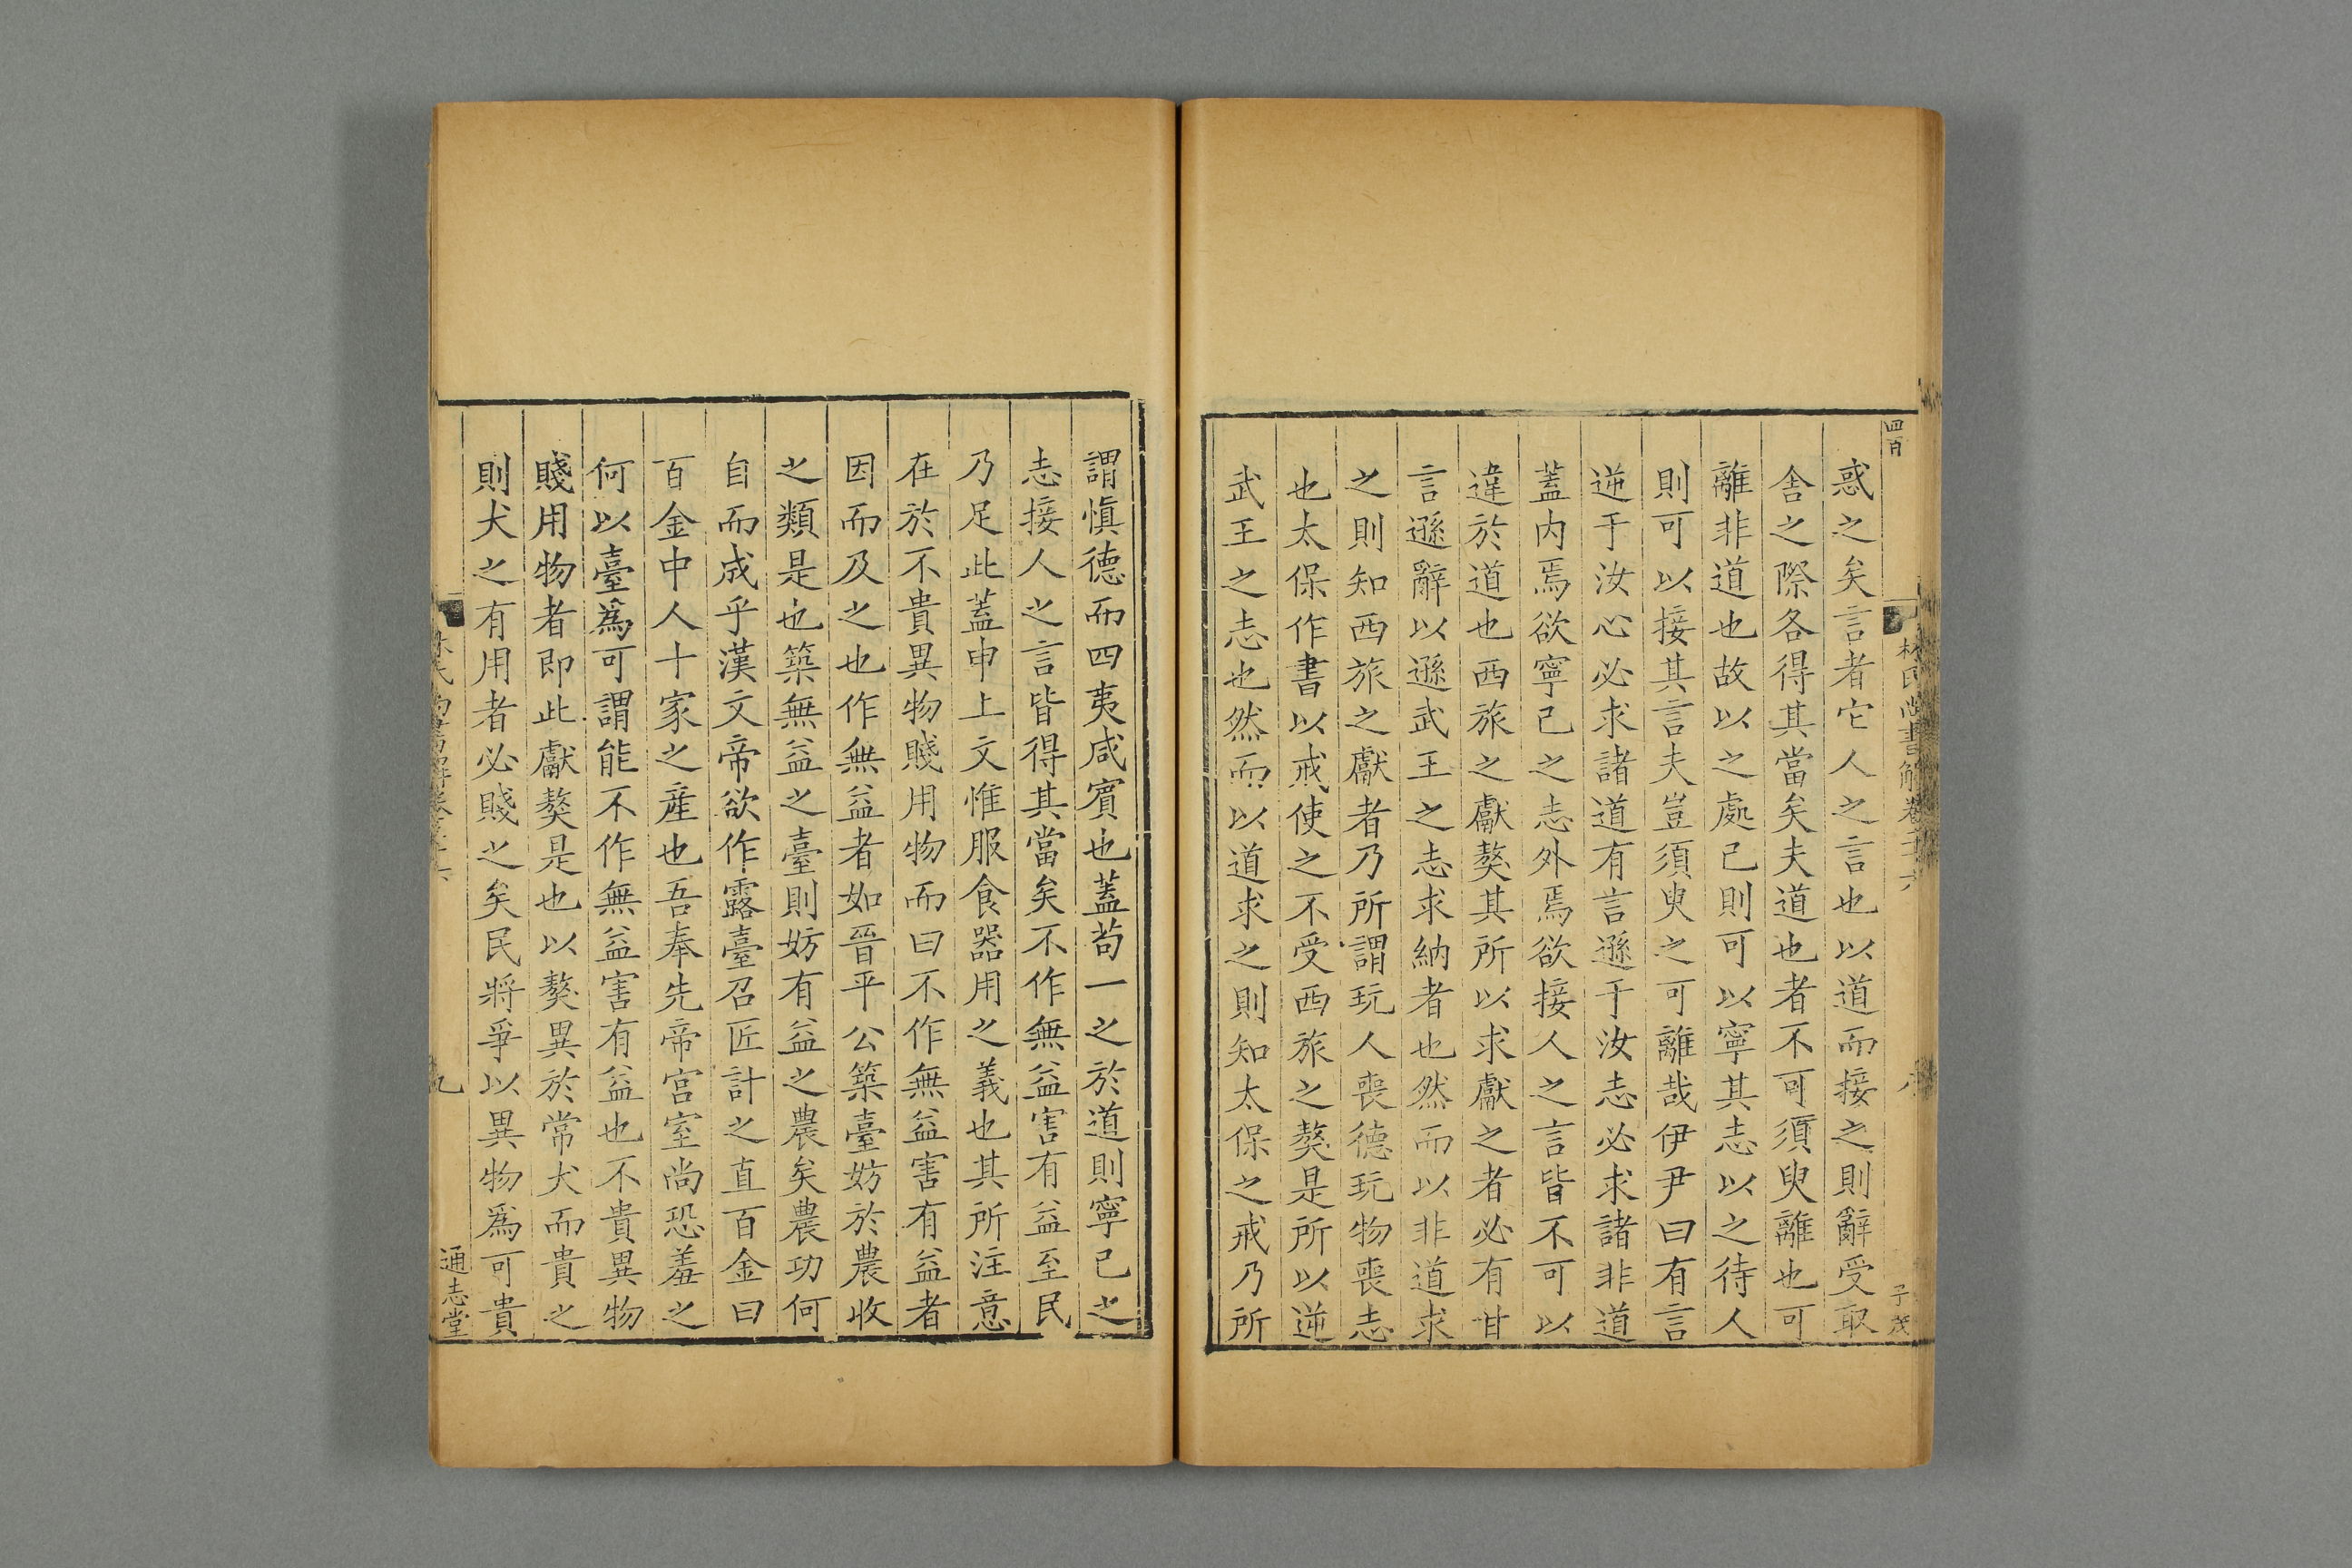 四百
林氏尚書解卷二十六
八
子茂
惑之矣言者它人之言也以道而接之則辭受取
舎之際各得其當矣夫道也者不可須臾離也可
離非道也故以之處己則可以寧其志以之待人
則可以接其言夫豈須臾之可離哉伊尹曰有言
逆于汝心必求諸道有言遜于汝志必求諸非道
蓋内焉欲寧己之志外焉欲接人之言皆不可以
違於道也西旅之獻獒其所以求獻之者必有甘
言遜辭以遜武王之志求納者也然而以非道求
之則知西旅之獻者乃所謂玩人喪德玩物喪志
也太保作書以戒使之不受西旅之獒是所以逆
武王之志也然而以道求之則知太保之戒乃所
謂慎德而四夷咸賓也蓋苟一之於道則寧己之
志接人之言皆得其當矣不作無益害有益至民
乃足此蓋申上文惟服食器用之義也其所注意
在於不貴異物賤用物而曰不作無益害有益者
因而及之也作無益者如晉平公築臺妨於農收
之類是也築無益之臺則妨有益之農矣農功何
自而成乎漢文帝欲作露臺召匠計之直百金曰
百金中人十家之産也吾奉先帝宮室尚恐羞之
何以臺為可謂能不作無益害有益也不貴異物
賤用物者即此獻獒是也以獒異於常犬而貴之
則犬之有用者必賤之矣民將爭以異物為可貴
九
通志堂